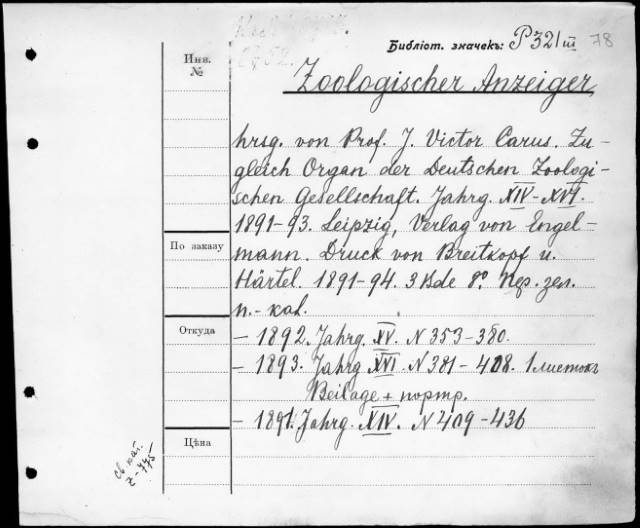 Библіот. значекъ: P 321 III 78
Инв. №
Zoologischer Anzeiger,
hrsg. von Prof. J. Victor Carus. Zu-
gleich Organ der Deutschen Zoologi-
schen Gesellschaft. Jahrg. XIV-XVI.
1891-93. Leipzig, Verlag von Engel-
По заказу
mann. Druck von Breitkopf u.
Härtel. 1891-94. 3 Bde 8º. Пер. зел.
п.-каl.
Откуда
- 1892. Jahrg. XV. N 353-380.
- 1893. Jahrg XVI. N 381-408. 1 листокъ
Beilage + портр.
- 1891. Jahrg. XIV. N 409-436
Цѣна
св. кат.
z-775